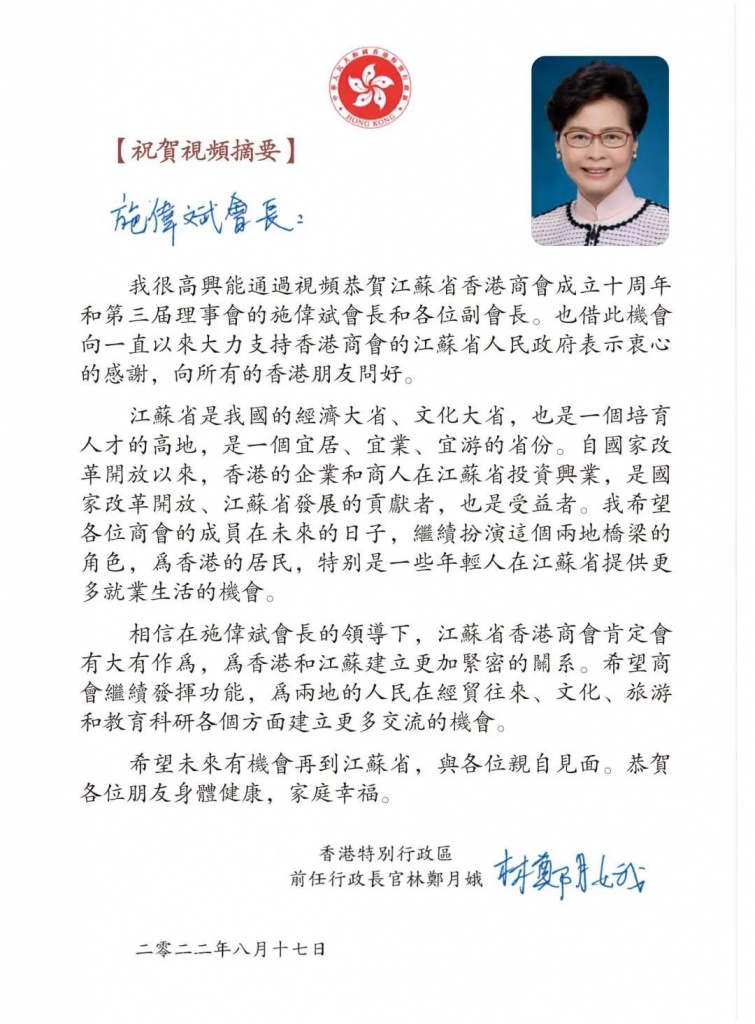 中華人民共和國香港特別行政區
HONG KONG
【祝賀視頻摘要】
施偉斌會長：
我很高興能通過視頻恭賀江蘇省香港商會成立十周年
和第三届理事會的施偉斌會長和各位副會長。也借此機會
向一直以來大力支持香港商會的江蘇省人民政府表示衷心
的感謝，向所有的香港朋友問好。
江蘇省是我國的經濟大省、文化大省，也是一個培育
人才的高地，是一個宜居、宜業、宜游的省份。自國家改
革開放以來，香港的企業和商人在江蘇省投資興業，是國
家改革開放、江蘇省發展的貢獻者，也是受益者。我希望
各位商會的成員在未來的日子，繼續扮演這個兩地橋梁的
角色，爲香港的居民，特別是一些年輕人在江蘇省提供更
多就業生活的機會。
相信在施偉斌會長的領導下，江蘇省香港商會肯定會
有大有作爲，爲香港和江蘇建立更加緊密的關系。希望商
會繼續發揮功能，爲兩地的人民在經貿往來、文化、旅游
和教育科研各個方面建立更多交流的機會。
希望未來有機會再到江蘇省，與各位親自見面。恭賀
各位朋友身體健康，家庭幸福。
香港特別行政區
前任行政長官林鄭月娥 林鄭月娥
二零二二年八月十七日